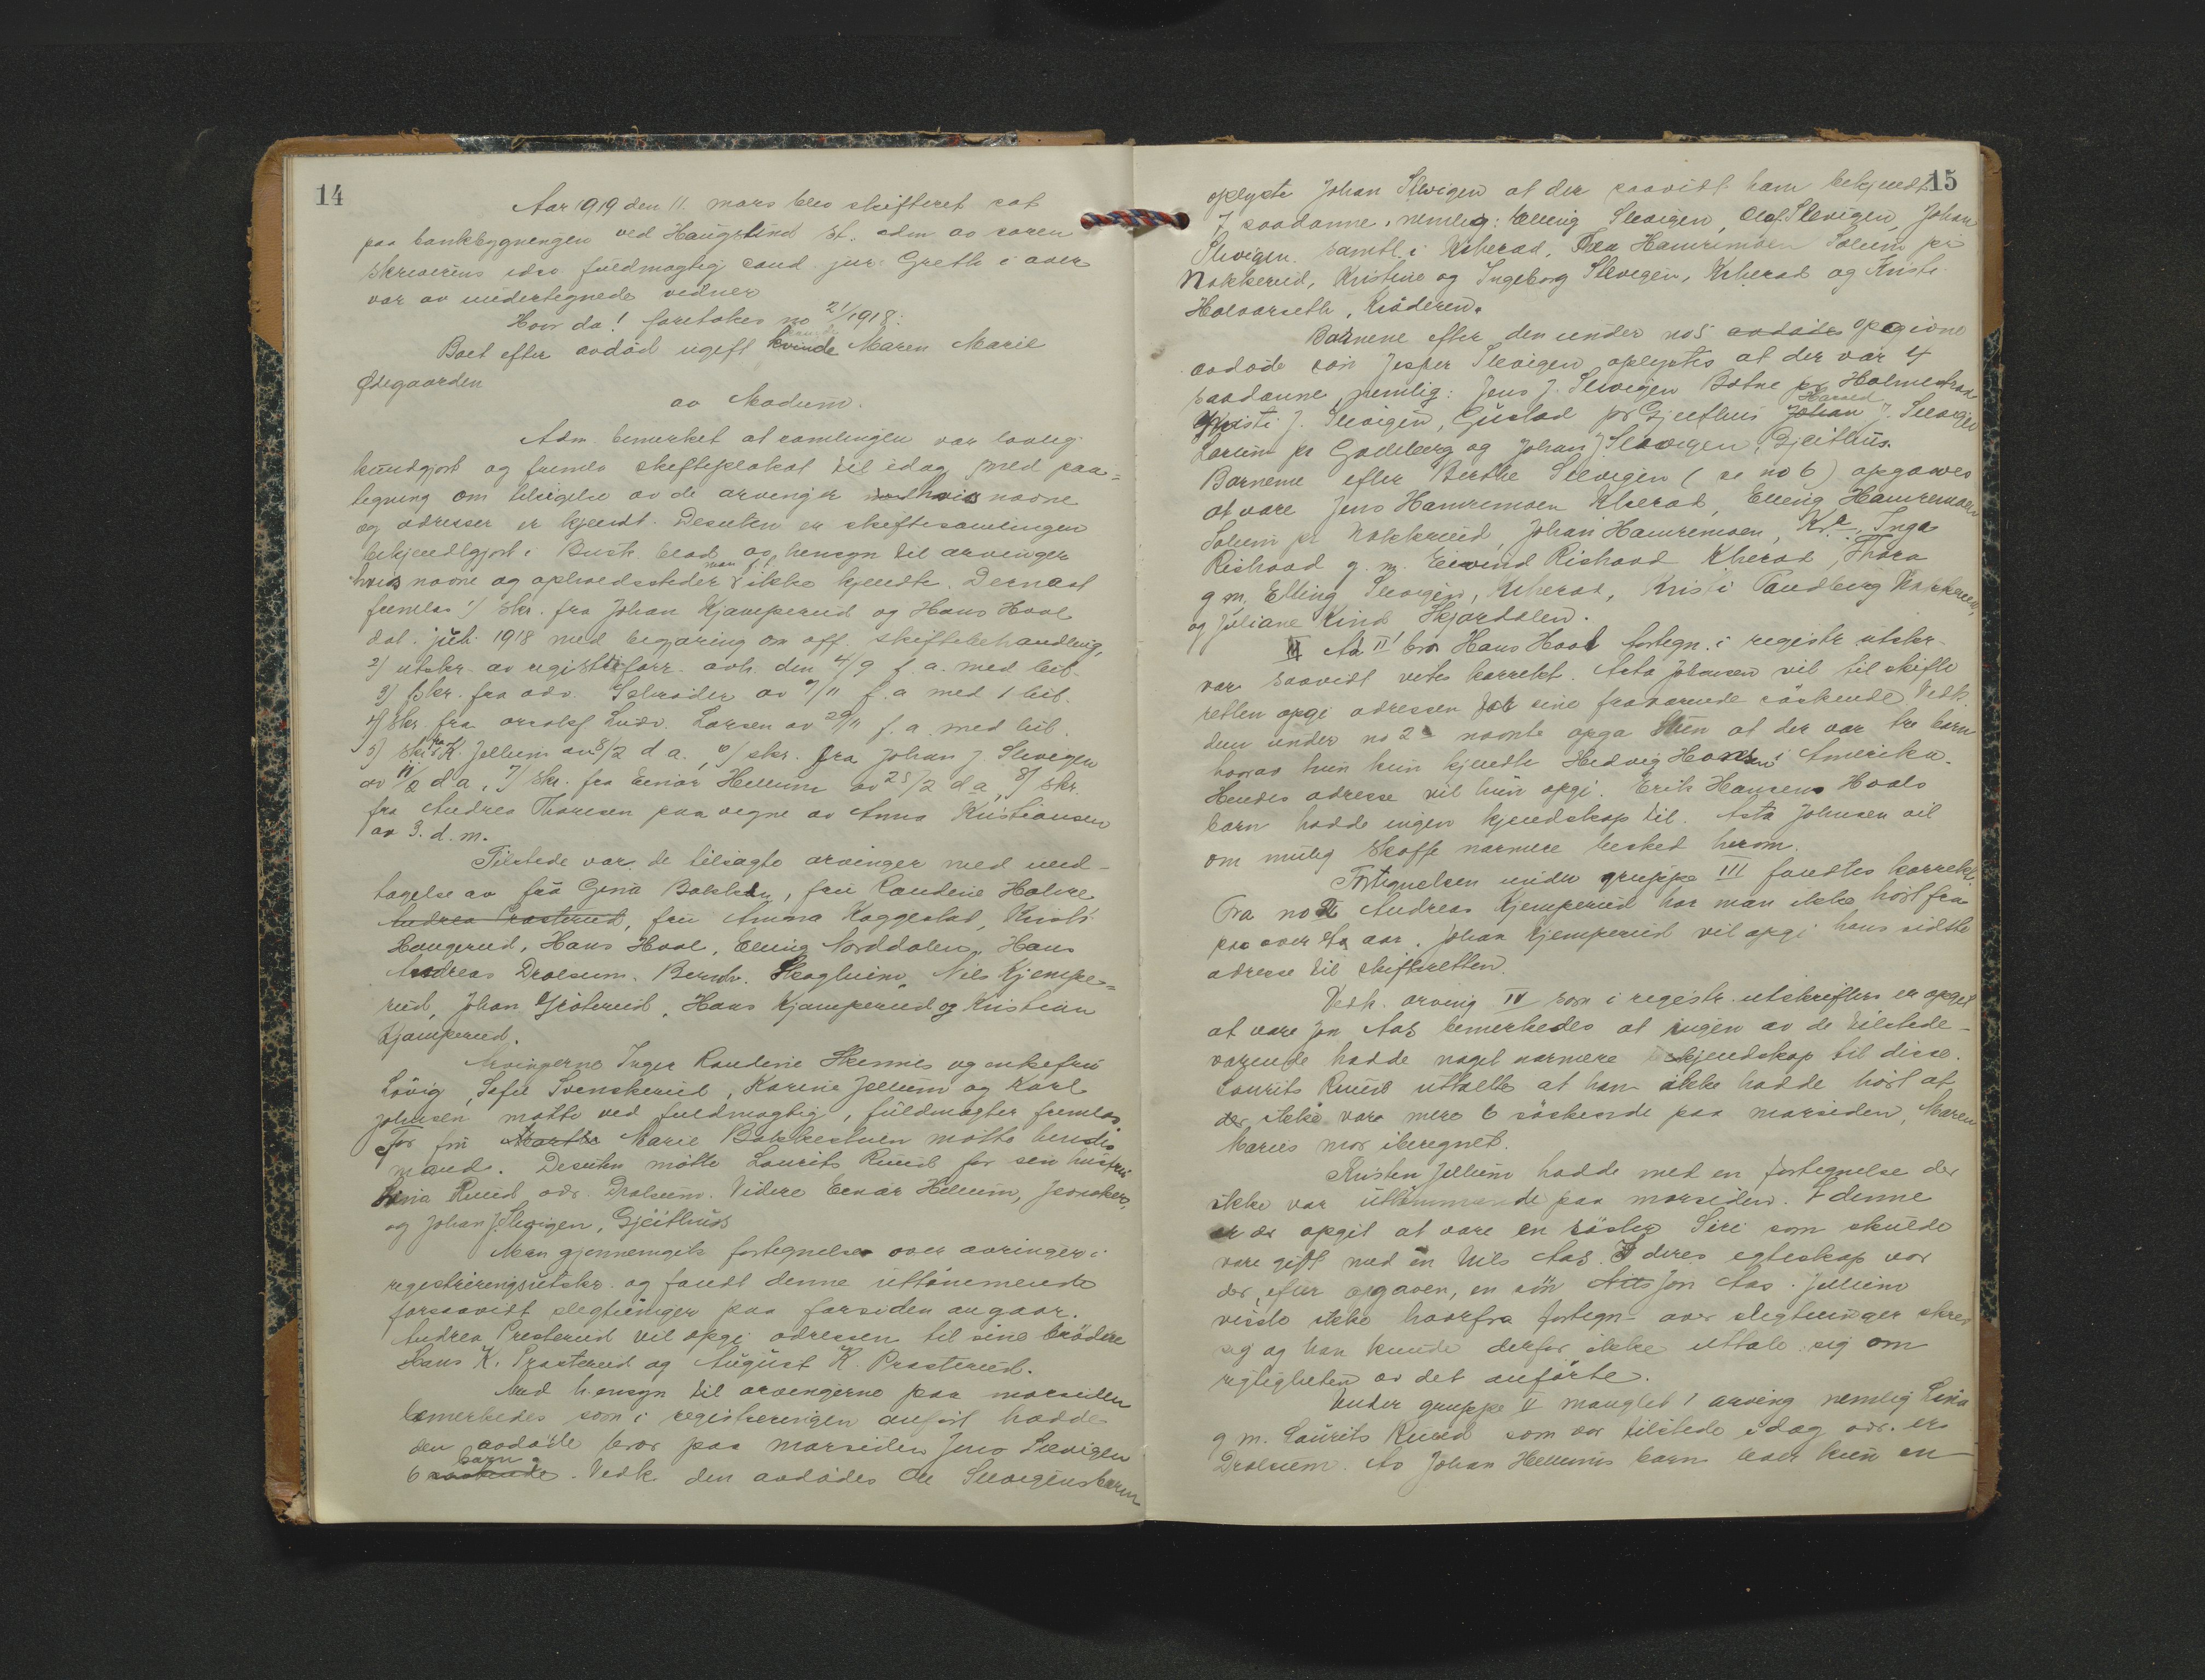 14
Aar 1919 den 11. mars blev skifteret sat
paa bankbygningen ved Haugsund st. adm. av soren
skriverens edsv fuldmægtig cand. jur. Greth i over
vær av undertegnede vidner
Hvor da! foretokes no 21/1918:
Boet efter avdöd ugift kvinde Maren Marie
Ødegaarden
av Modum.
Adm. bemerket at samlingen var lovlig
kundgjort og fremla skifteplakat til idag med paa=
tegning om tilsigelse av de arvinger hvis navne
og adresser er kjendt. Desuten er skiftesamlingen
bekjendtgjort i Busk. blad av hensyn til arvinger
hvis navne og opholdssteder man ikke kjendte. Dernæst
fremlas 1/ skr. fra Johan Kjæmperud og Hans Hval
dat. juli 1918 med begjæring om off. skiftebehandling,
2) utskr. av registr.forr. avh. den 4/9 f. a. med bil.
3) skr. fra adv. Schröder av 7/11 f. a med 1 bil.
4) skr. fra Ludv. Larsen av 29/11 f. a. med bil.
5) skr. fra K. Jellum av 8/2 d a., 6/ skr. fra Johan J. Slevigen
av 11/2 d a, 7/ skr. fra Einar Hellum av 25/2 d a, 8/ skr.
fra Andrea Thoresen paa vegne av Anna Kristiansen
av 3. d. m.
Tilstede var de tilsagte arvinger med und-
tagelse av fru Gina Bakken, fru Randine Holme
Andrea Præsterud, fru Anna Kaggestad, Kristi
Haugerud, Hans Hval, Elling Norddalen, Hans
Andreas Drolsum. Berndr. Skogheim, Nils Kjempe=
rud, Johan Gröterud, Hans Kjæmperud og Kristian
Kjæmperud.
Arvingerne Inger Randine Skinnes og enkefru
Lövig, Sefie Svenskerud, Karine Jellum og Karl
Johnsen mötte ved fuldmægtig, fuldmagter fremlas.
For fru Marthe Marie Bakkestuen mötte hendes
mand. Desuten mötte Laurits Ruud for sin hustru
Lina Ruud adr. Drolsum. Videre Einar Hellum,
og Johan J. Slevigen, Gjeithus
Man gjennemgik fortegnelse over arvinger i
registreringsutskr. og fandt denne uttömmende
forsaavidt slegtninger paa farsiden angaar.
Andrea Presterud vil opgi adressen til sine brödre
Hans K. Prasterud og August K. Prasterud.
Med hensyn til arvingerne paa morsiden
bemerkedes som i registreringen anfört hadde
den avdöde bror paa morsiden Jens Slevigen
6 söskende barn. Vedk. den avdödes Ole Slevigens barn
15
oplyste Johan Slevigen at der saavidt ham bekjendt
7 saadanne, nemlig: Elling Slevigen, Olaf Slevigen, Johan
Slevigen samtl. i Krherad, Thea Hamremoen Solum pr
Nakkerud, Kristine og Ingeborg Slevigen, Krherad og Kristi
Halvorseth, Kröderen.
Barnene efter den under no 5 avdöde opgivne
avdöde sön Jesper Slevigen oplystes at der var 4
saadanne, nemlig: Jens J. Slevigen Botne pr Holmestrand
Kristi J. Slevigen, Gustad pr Gjeithus Harald Johan J. Slevigen
Larum pr Godeberg og Johan J. Slevigen, Gjeithus.
Barnene efter Berthe Slevigen (se no 6) opgaves
at være Jens Hamremoen Krherad, Elling Hamremoen
Solum pr Nakkerud, Johan Hamremoen, Kr.a, Inga
Rishaad g. m. Eivind Rishaad Krherad, Thora
g m. Elling Slevigen, Krherad, Kristi Sandberg Nakkerud,
og Juliane Kind Skjordalen.
II Ad II bra Hans Hval fortegn. i registr. utskr.
var saavidt vites korrekt. Asta Johnsen vil til skifte
retten opgi adressen for sine fraværende söskende. Vedk.
den under no 2 nævnte opga hun at der var tre barn
hvorav hun kun kjendte Hedvig Hansen i Amerika.
Hendes adresse vil hun opgi. Erik Hansens Hvals
barn hadde ingen kjendskap til. Asta Johnsen vil
om mulig skaffe nærmere besked herom.
Fortegnelsen under gruppe III fandtes korrekt.
Fra no Andreas Kjemperud har man ikke hört fra
paa over aar. Johan Kjemperud vil opgi hans sidste
adresse til skifteretten.
Vedk. arving IV som i registr. utskriften er opgit
at være Jon Aas bemerkedes at ingen av de tilstede-
værende hadde noget nærmere kjendskap til disse.
Laurits Ruud uttalte at han ikke hadde hört at
der ikke vare mere 6 söskende paa morsiden, Maren
Maries mor iberegnet.
Kristen Jellum hadde med en fortegnelse der
ikke var uttömmende paa morsiden. I denne
er der opgit at være en söster Siri som skulde
være gift med en Nils Aas. I deres egteskap var
der, efter opgaven, en sön Nils Jon Aas. Jellum
visste ikke hvorfra fortegn- over slegtninger skrev
sig og han kunde derfor ikke uttale sig om
rigtigheten av det anförte.
Under gruppe V manglet 1 arving nemlig Lina
g m. Laurits Ruud som var tilstede idag adr. er
Drolsum. Av Johan Hellums barn lever kun en